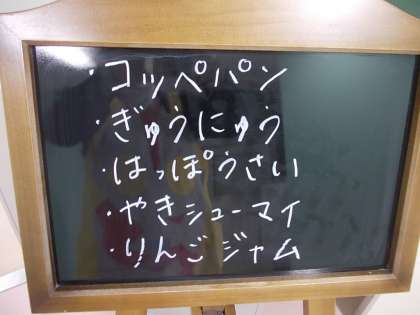 ・コッペパン
・ぎゅうにゅう
・はっぽうさい
・やきシューマイ
・りんごジャム